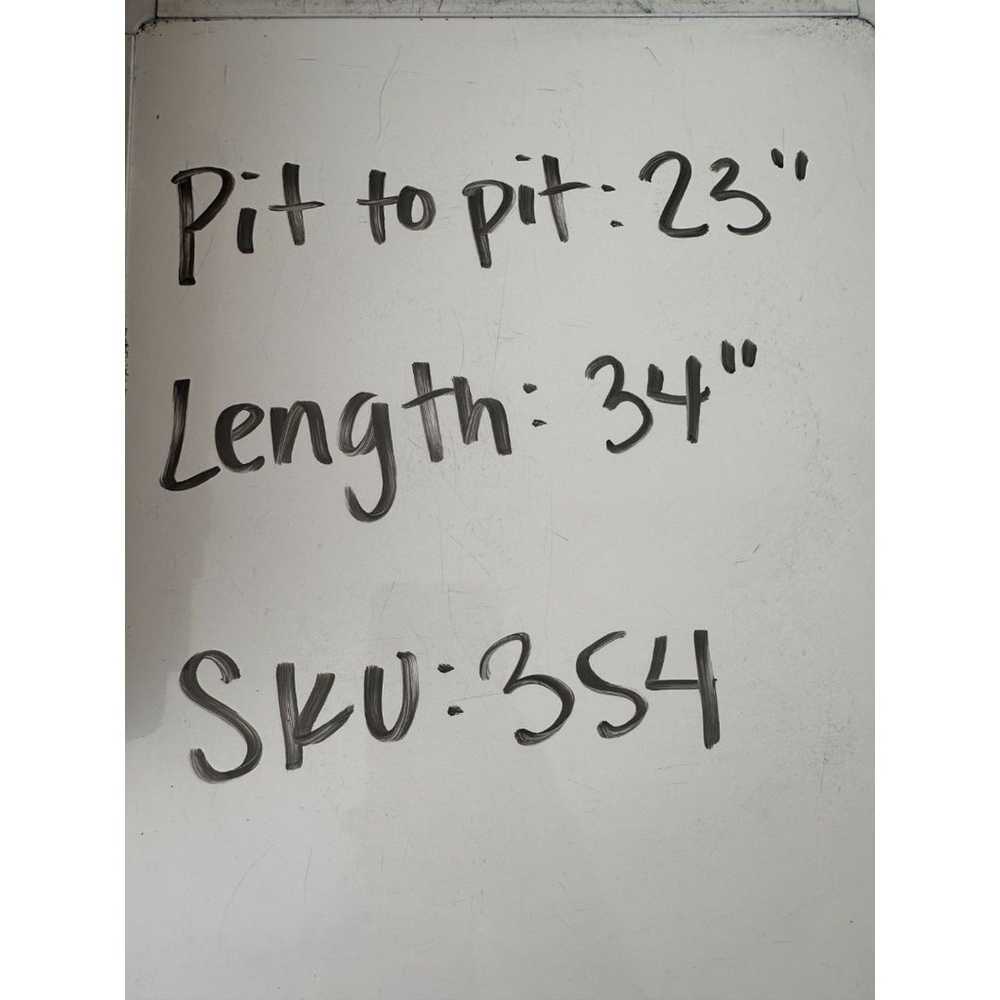 Pit to pit: 23"
Length: 34"
SKU: 354